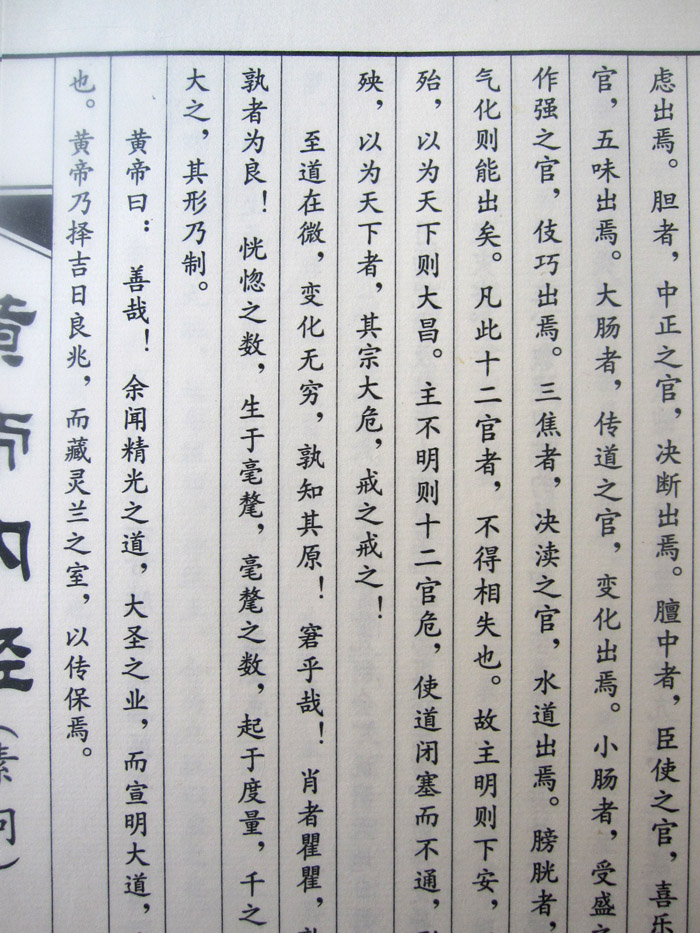 虑出焉。胆者，中正之官，决断出焉。膻中者，臣使之官，喜乐
官，五味出焉。大肠者，传道之官，变化出焉。小肠者，受盛之
作强之官，伎巧出焉。三焦者，决渎之官，水道出焉。膀胱者，
气化则能出矣。凡此十二官者，不得相失也。故主明则下安，
殆，以为天下则大昌。主不明则十二官危，使道闭塞而不通，
殃，以为天下者，其宗大危，戒之戒之！
至道在微，变化无穷，孰知其原！窘乎哉！肖者瞿瞿，
孰者为良！恍惚之数，生于毫氂，毫氂之数，起于度量，千之
大之，其形乃制。
黄帝曰：善哉！余闻精光之道，大圣之业，而宣明大道，
也。黄帝乃择吉日良兆，而藏灵兰之室，以传保焉。
黄帝内经（素问）